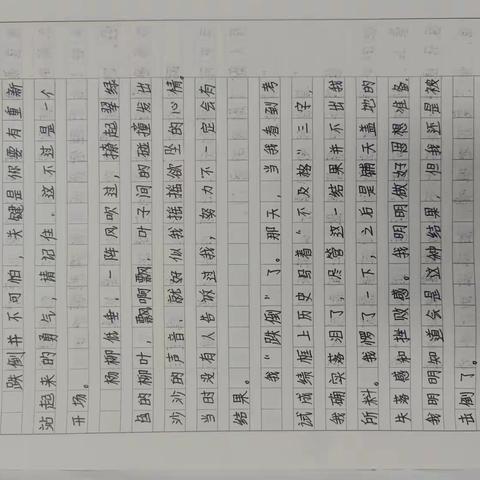 跌倒并不可怕，关键是你要有重新
站起来的勇气，请记住，这不过是一个
开场。
杨柳低垂，一阵风吹过，撩起翠绿
色的柳叶，飘啊飘，叶子间的碰撞发出
沙沙的声音，就好似我摇摇欲坠的心情。
当时没有人告诉过我，努力不一定会有
结果。
我“跌倒”了。那天，当我看到考
试成绩框上历史写着“不及格”三字，
我确实落泪了，尽管这一结果并不出我
所料。我愣了一下，之后是铺天盖地的
失落感和挫败感。我明明做好思想准备，
我明明知道会是这种结果，但我还是被
击倒了。